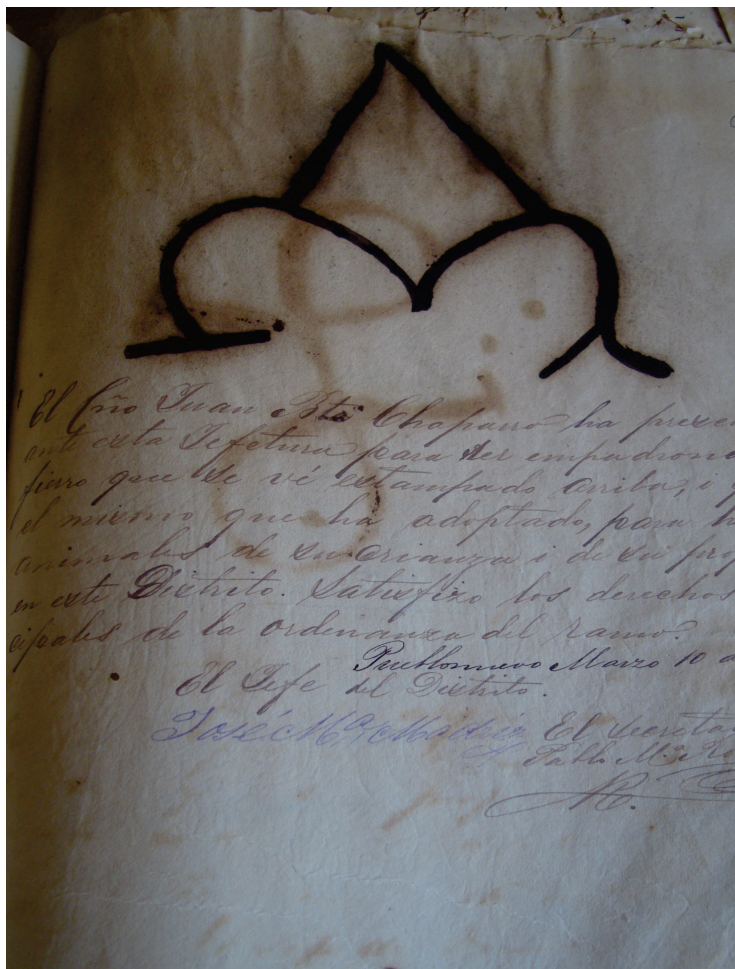 El Cno Juan Bta Chaparro ha presen
ante esta Jefetura para ser empadrona
fierro que se vé estampado arriba, i q
el mismo que ha adoptado, para h
animales de su crianza i de su prop
en este Distrito. Satisfizo los derechos
cipales de la ordenanza del ramo.
Pueblonuevo Marzo 10 a
El Jefe del Distrito.
José Ma El Secreta
Pablo M.